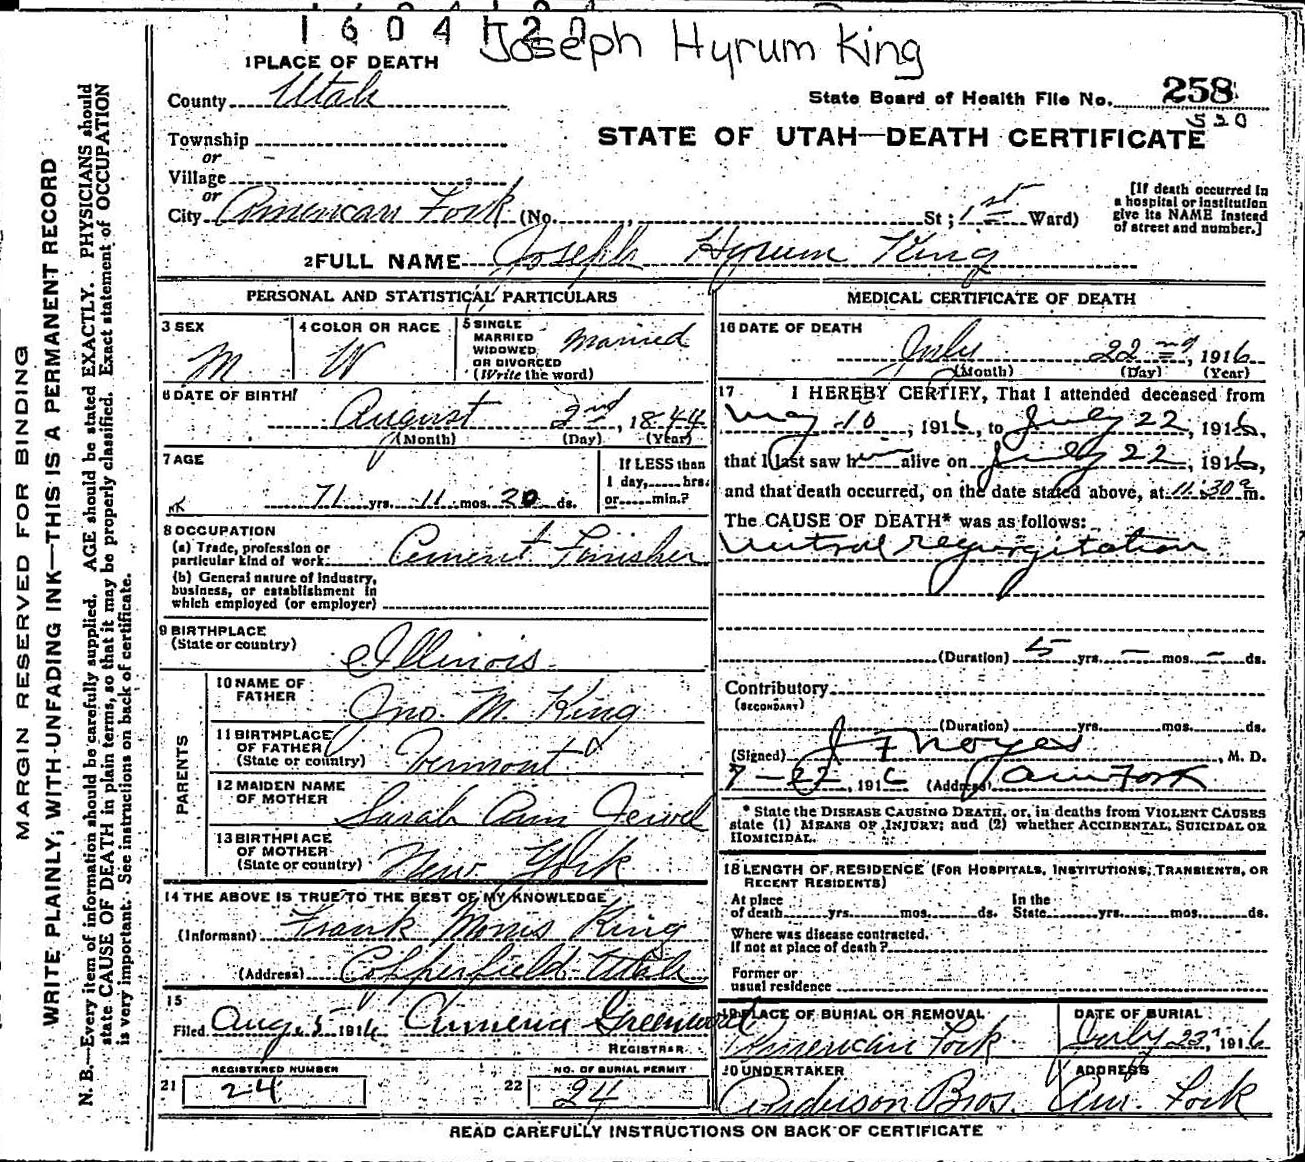 1604120 Joseph Hyrum King
1 PLACE OF DEATH
County Utah
State Board of Health File No. 258
530
STATE OF UTAH—DEATH CERTIFICATE
Township
or
Village
or
City American Fork (No. St; 1st Ward)
[If death occurred in a hospital or institution give its NAME instead of street and number.]
2 FULL NAME Joseph Hyrum King
PERSONAL AND STATISTICAL PARTICULARS
3 SEX M
4 COLOR OR RACE W
5 SINGLE MARRIED WIDOWED OR DIVORCED (Write the word) Married
6 DATE OF BIRTH August 2nd, 1844
(Month) (Day) (Year)
7 AGE 71 yrs. 11 mos. 20 ds.
If LESS than 1 day, hrs. or min.?
8 OCCUPATION
(a) Trade, profession or particular kind of work Cement Finisher
(b) General nature of industry, business, or establishment in which employed (or employer)
9 BIRTHPLACE
(State or country) Illinois
PARENTS
10 NAME OF FATHER Jno. M. King
11 BIRTHPLACE OF FATHER (State or country) Vermont
12 MAIDEN NAME OF MOTHER Sarah Ann Jewel
13 BIRTHPLACE OF MOTHER (State or country) New York
14 THE ABOVE IS TRUE TO THE BEST OF MY KNOWLEDGE
(Informant) Frank Morris King
(Address) Copperfield Utah
15
Filed Aug. 5 1916 Armena Greenwood
REGISTRAR
REGISTERED NUMBER
21 24
NO. OF BURIAL PERMIT
22 24
MEDICAL CERTIFICATE OF DEATH
16 DATE OF DEATH July 22nd, 1916
(Month) (Day) (Year)
17 I HEREBY CERTIFY, That I attended deceased from
May 10, 1916, to July 22, 1916,
that I last saw h alive on July 22, 1916,
and that death occurred, on the date stated above, at 11:30 a m.
The CAUSE OF DEATH* was as follows:
Mitral regurgitation
(Duration) 5 yrs. – mos. – ds.
Contributory
(SECONDARY)
(Duration) yrs. mos. ds.
(Signed) J F Noyes, M. D.
7-22, 1916 (Address) Am Fork
* State the DISEASE CAUSING DEATH, or, in deaths from VIOLENT CAUSES state (1) MEANS OF INJURY; and (2) whether ACCIDENTAL, SUICIDAL OR HOMICIDAL.
18 LENGTH OF RESIDENCE (FOR HOSPITALS, INSTITUTIONS, TRANSIENTS, OR RECENT RESIDENTS)
At place of death yrs. mos. ds. In the State yrs. mos. ds.
Where was disease contracted, if not at place of death?
Former or usual residence
19 PLACE OF BURIAL OR REMOVAL American Fork
DATE OF BURIAL July 23, 1916
20 UNDERTAKER Anderson Bros.
ADDRESS Am. Fork
READ CAREFULLY INSTRUCTIONS ON BACK OF CERTIFICATE
MARGIN RESERVED FOR BINDING
WRITE PLAINLY, WITH UNFADING INK—THIS IS A PERMANENT RECORD
N. B.—Every item of information should be carefully supplied. AGE should be stated EXACTLY. PHYSICIANS should
state CAUSE OF DEATH in plain terms, so that it may be properly classified. Exact statement of OCCUPATION
is very important. See instructions on back of certificate.